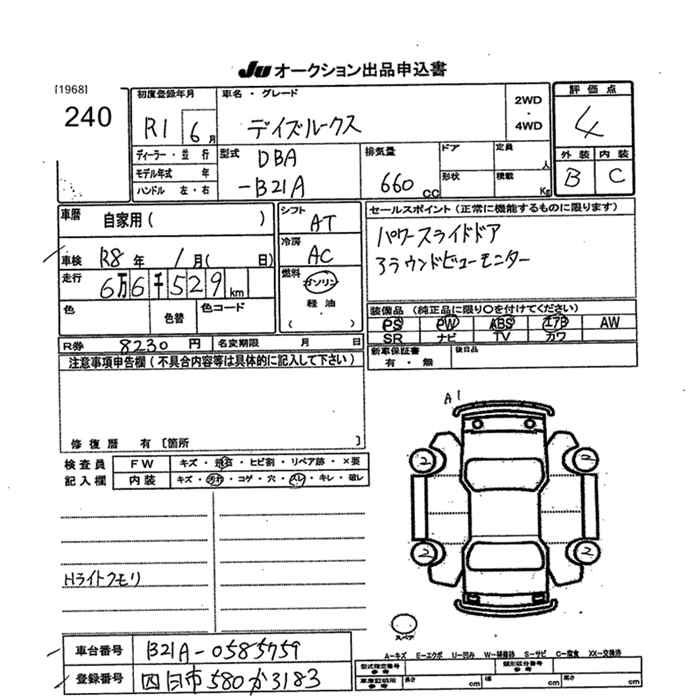 JU オークション出品申込書
[1968]
240
初度登録年月
R1 6月
車名・グレード
デイズルークス
2WD
・
4WD
評価点
4
外装 内装
B C
ディーラー・並行
モデル年式 年
ハンドル 左・右
型式 DBA
-B21A
排気量
660 CC
ドア
形状
定員 人
積載 Kg
車歴 自家用( )
車検 R8年 1月( 日)
走行 6万6千529km
色 色替 色コード
シフト AT
冷房 AC
燃料 ガソリン
軽油
( )
セールスポイント(正常に機能するものに限ります)
パワースライドドア
アラウンドビューモニター
装備品(純正品に限り○を付けてください)
PS PW ABS エアB AW
SR ナビ TV カワ
R券 8230円 名変期限 月 日
新車保証書 後日品
有・無
注意事項申告欄(不具合内容等は具体的に記入して下さい)
修復歴 有[箇所 ]
検査員
記入欄
FW キズ・飛石・ヒビ割・リペア跡・×要
内装 キズ・汚れ・コゲ・穴・スレ・キレ・破レ
A1
2 2
2 2
Hライトクモリ
スペア
A-キズ E-エクボ U-凹み W-補修跡 S-サビ C-腐食 XX-交換済
車台番号 B21A-0585759
登録番号 四日市580か3183
型式指定番号
参考
類別区分番号
参考
車庫証明用
参考
長さ cm 幅 cm 高さ cm